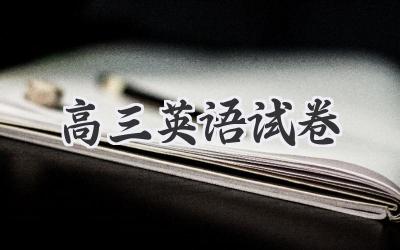 高三英语试卷